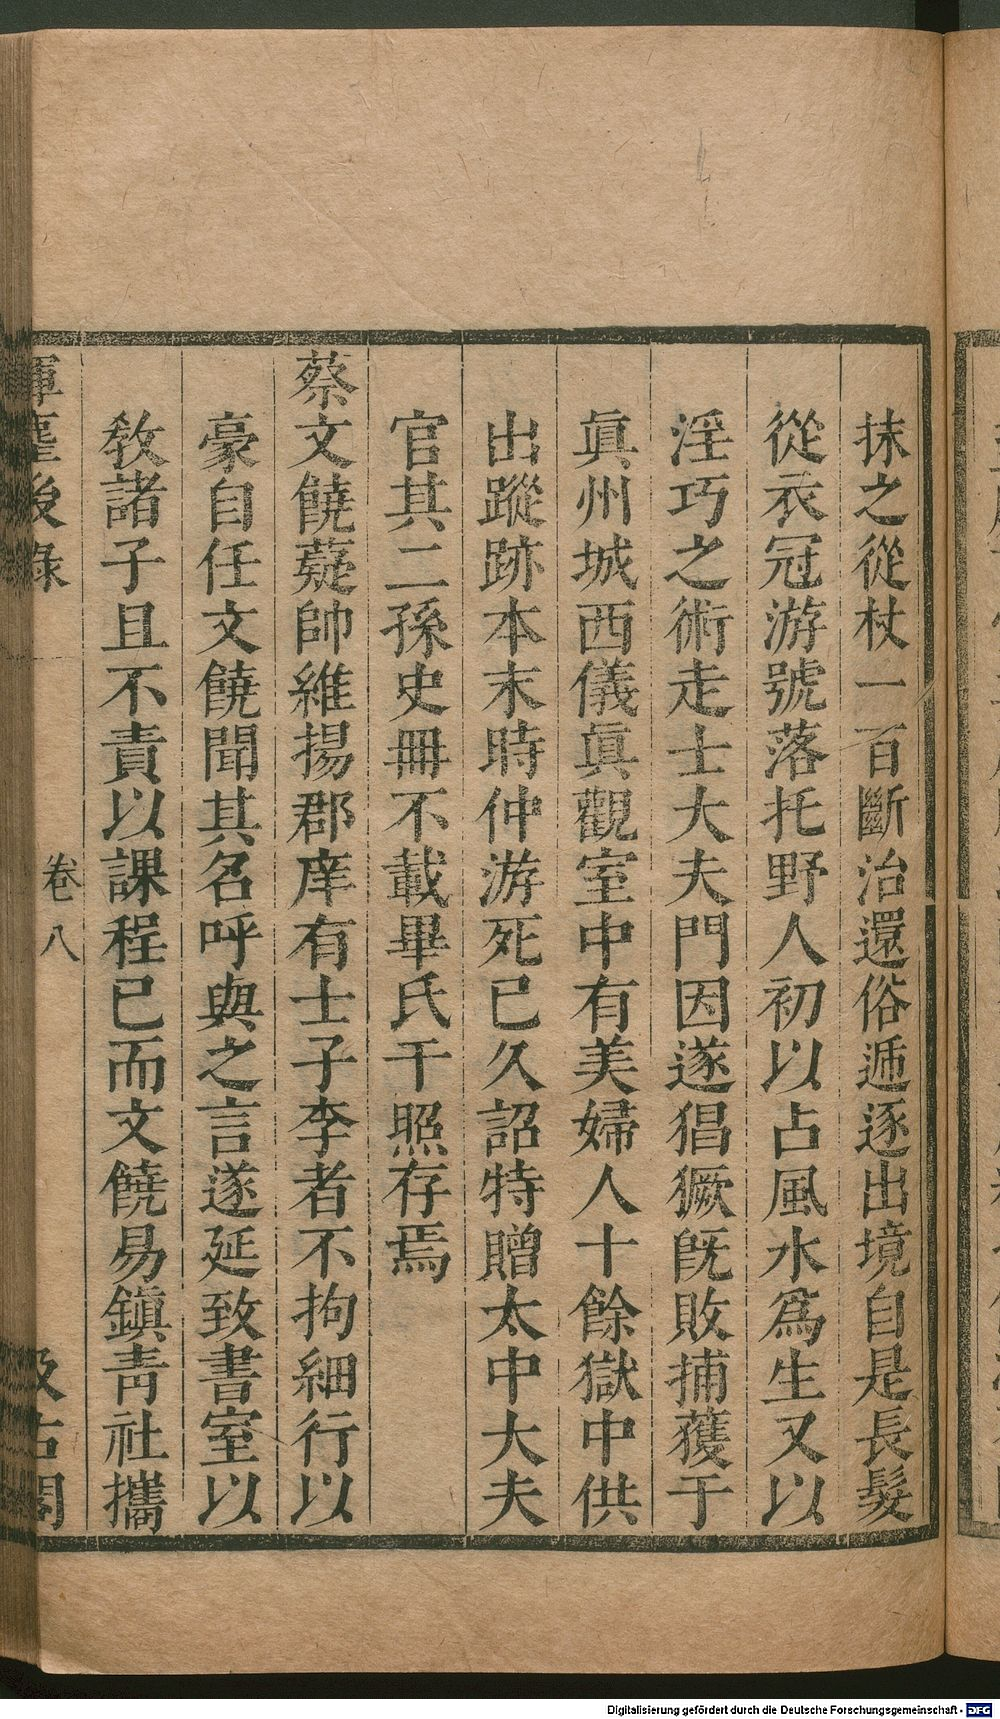 抹之從杖一百斷治還俗遞逐出境自是長髮
從衣冠游號落托野人初以占風水爲生又以
淫巧之術走士大夫門因遂猖獗旣敗捕獲于
眞州城西儀眞觀室中有美婦人十餘獄中供
出蹤跡本末時仲游死已久詔特贈太中大夫
官其二孫史冊不載畢氏干照存焉
蔡文饒薿帥維揚郡庠有士子李者不拘細行以
豪自任文饒聞其名呼與之言遂延致書室以
敎諸子且不責以課程已而文饒易鎭靑社攜
揮麈後錄
卷八
汲古閣
Digitalisierung gefördert durch die Deutsche Forschungsgemeinschaft - DFG